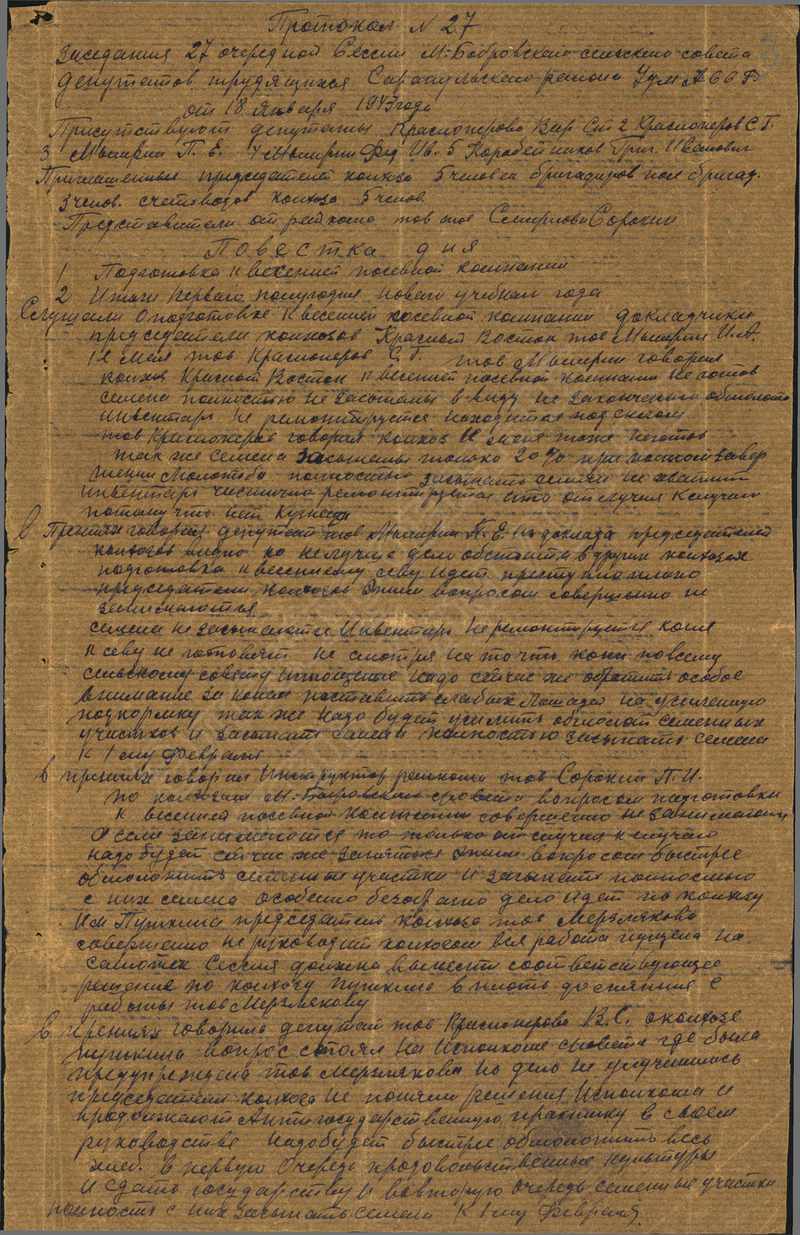 Протокол N 27
заседания 27 очередной Сессии М-Бобровского сельского совета
депутатов трудящихся Сарапульского района УдмАССР
от 18 января 1947 года
Присутствуют депутаты 1 Красноперова Вар Ст 2 Красноперов С.Г.
3 Мымрин П.Е. 4 Мымрин Фед Ив. 5 Коробейников Григ. Иванович
Приглашенные председателей колхоза 5 человек бригадиров пол бригад.
3 челов. счетоводов колхоза 5 челов.
Представители от райкома тов тов Смирнова Сорокин
Повестка дня
1 Подготовка к весенней посевной компании
2 Итоги первого полугодия нового учебного года
Слушали О подготовке к весенней посевной компании докладчики
председатели колхозов Красный Восток тов Мымрин И.А.
1е Мая тов Красноперов С.Г. тов Мымрин говорил
колхоз Красный Восток к весенней посевной компании не готов
семена полностью не засыпаны в виду не законченой обмолота
инвентарь не ремонтируется находится под снегом
тов Красноперов говорил колхоз 1е мая тоже не готов
так же семена засыпаны только 20% при полном завер
шении молотьбы полностью засыпать семена не хватит
инвентарь частично ремонтируется и то от случая к случаю
потому что нет кузнеца
В Прениях говорил депутат тов Мымрин П.Е. из доклада председателей
колхозов видно но не лучше дело обстоит и в других колхозах
подготовка к весеннему севу идет преступно плохо
председатели колхозов этим вопросом совершенно не
занимаются
семена не засыпаются Инвентарь не ремонтируется коня
к севу не готовят не смотря на то что кони по всему
сельскому совету истощение надо сейчас же обратить особое
внимание за коням поставить слабых Лошадей на усиленную
подкормку так же надо будет усилить обмолот семенных
участков и засыпать семена полностью засыпать семена
к 1 му Февраля
В прениях говорил Инструктор райкома тов Сорокин П.И.
по колхозам М-Бобровского с/совета вопросом подготовки
к весенней посевной компании совершенно не занимаются
А если занимаются то только от случая к случаю
надо будет сейчас же заняться этим вопросом быстрее
обмолотить семенные участки и засыпать полностью
с них семена особенно безобразно дело идет по колхозу
Им Пушкина председатель колхоза тов Мерзлякова
совершенно не руководит колхозом вся работа пущена на
самотек Сессия должна вынести соответствующее
решение по колхозу Пушкина вплоть до снятия с
работы тов Мерзлякову
В прениях говорила депутат тов Красноперова В.С. о колхозе
Пушкина вопрос стоял на Исполкоме с/совета где была
предупреждена тов Мерзлякова но дело не улучшилось
председатели колхоза не поняли решения Исполкома и
продолжают Антигосударственную практику в своем
руководстве надо будет быстрее обмолотить весь
хлеб. в первую Очередь продовольственные культуры
и сдать государству и во вторую очередь семенные участки
полностью с них засыпать семена к 1 му Февраля.